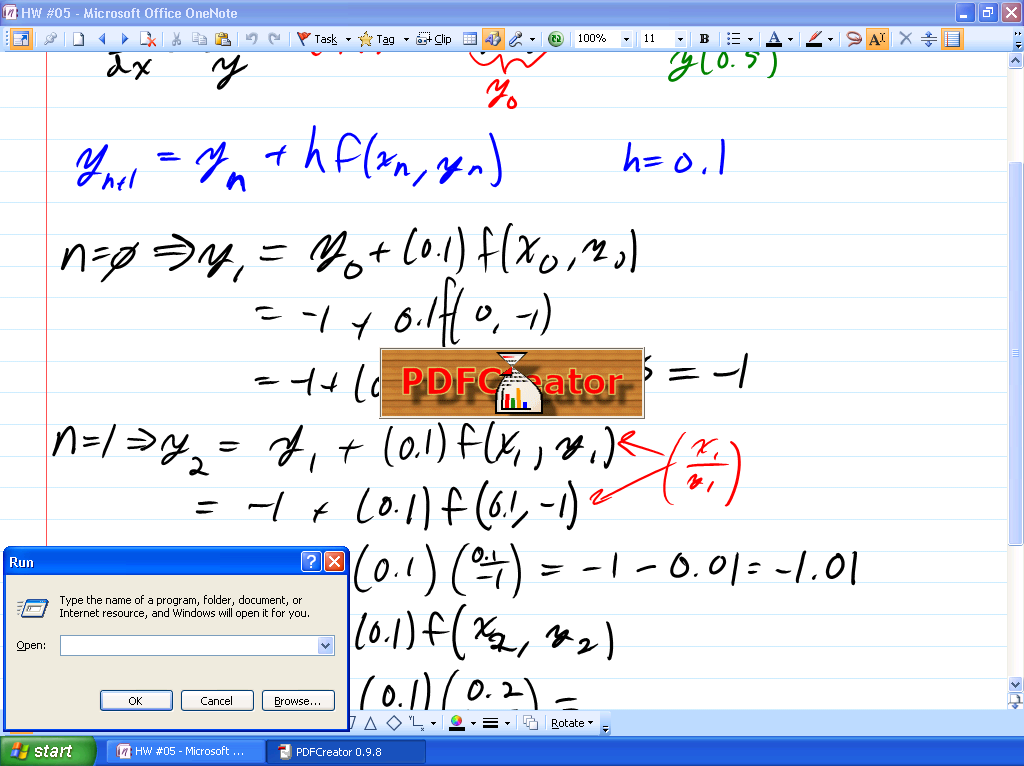 HW #05 - Microsoft Office OneNote
Task Tag Clip 100% 11 B A A
dx y y(0.5)
y₀
yₙ₊₁ = yₙ + h f(xₙ, yₙ) h = 0.1
n=∅ ⇒ y₁ = y₀ + (0.1) f(x₀, y₀)
= -1 + 0.1 f(0, -1)
= -1 + (0 = -1
PDFCreator
n=1 ⇒ y₂ = y₁ + (0.1) f(x₁, y₁) (x₁/y₁)
= -1 + (0.1) f(0.1, -1)
(0.1) (0.1/-1) = -1 - 0.01 = -1.01
(0.1) f(x₂, y₂)
(0.1) (0.2 ) =
Run
Type the name of a program, folder, document, or
Internet resource, and Windows will open it for you.
Open:
OK Cancel Browse...
Rotate
start HW #05 - Microsoft ... PDFCreator 0.9.8